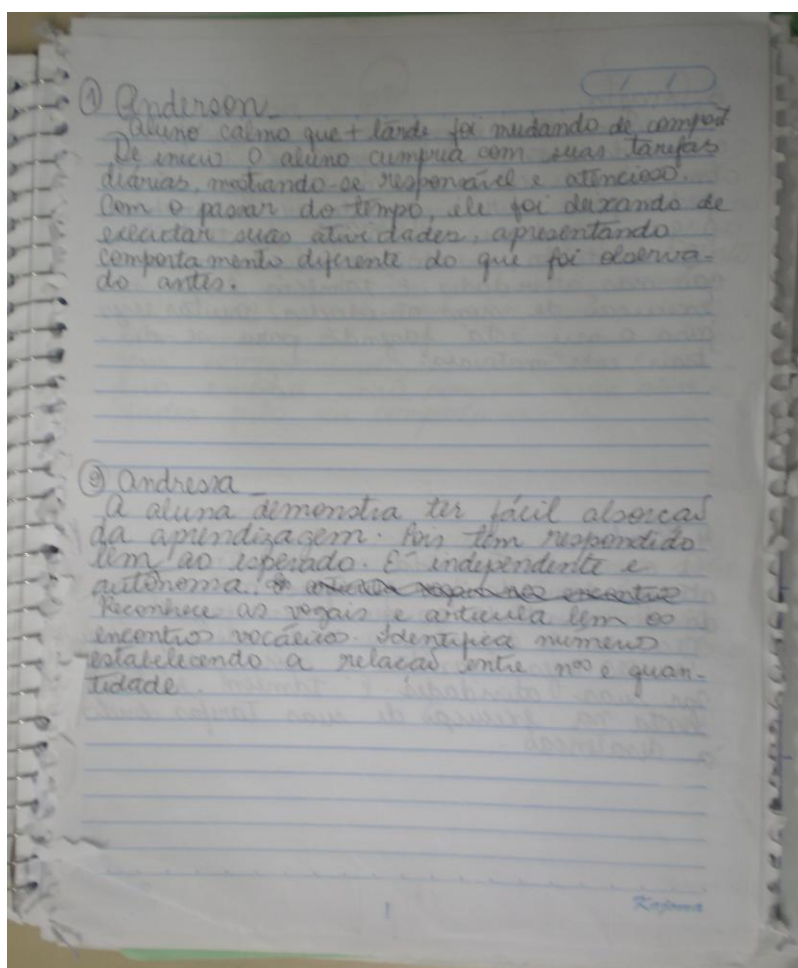 ① Anderson_
Aluno calmo que + tarde foi mudando de comport
De inicio o aluno cumpria com suas tarefas
diárias, mostrando-se responsável e atencioso.
Com o passar do tempo, ele foi deixando de
executar suas atividades, apresentando
comportamento diferente do que foi observa-
do antes.
② Andressa_
A aluna demonstra ter fácil absorção
da aprendizagem. Pois tem respondido
bem ao esperado. É independente e
autônoma.
Reconhece as vogais e articula bem os
encontros vocálicos. Identifica numeros
estabelecendo a relação entre nºs e quan-
tidade.
Kajoma